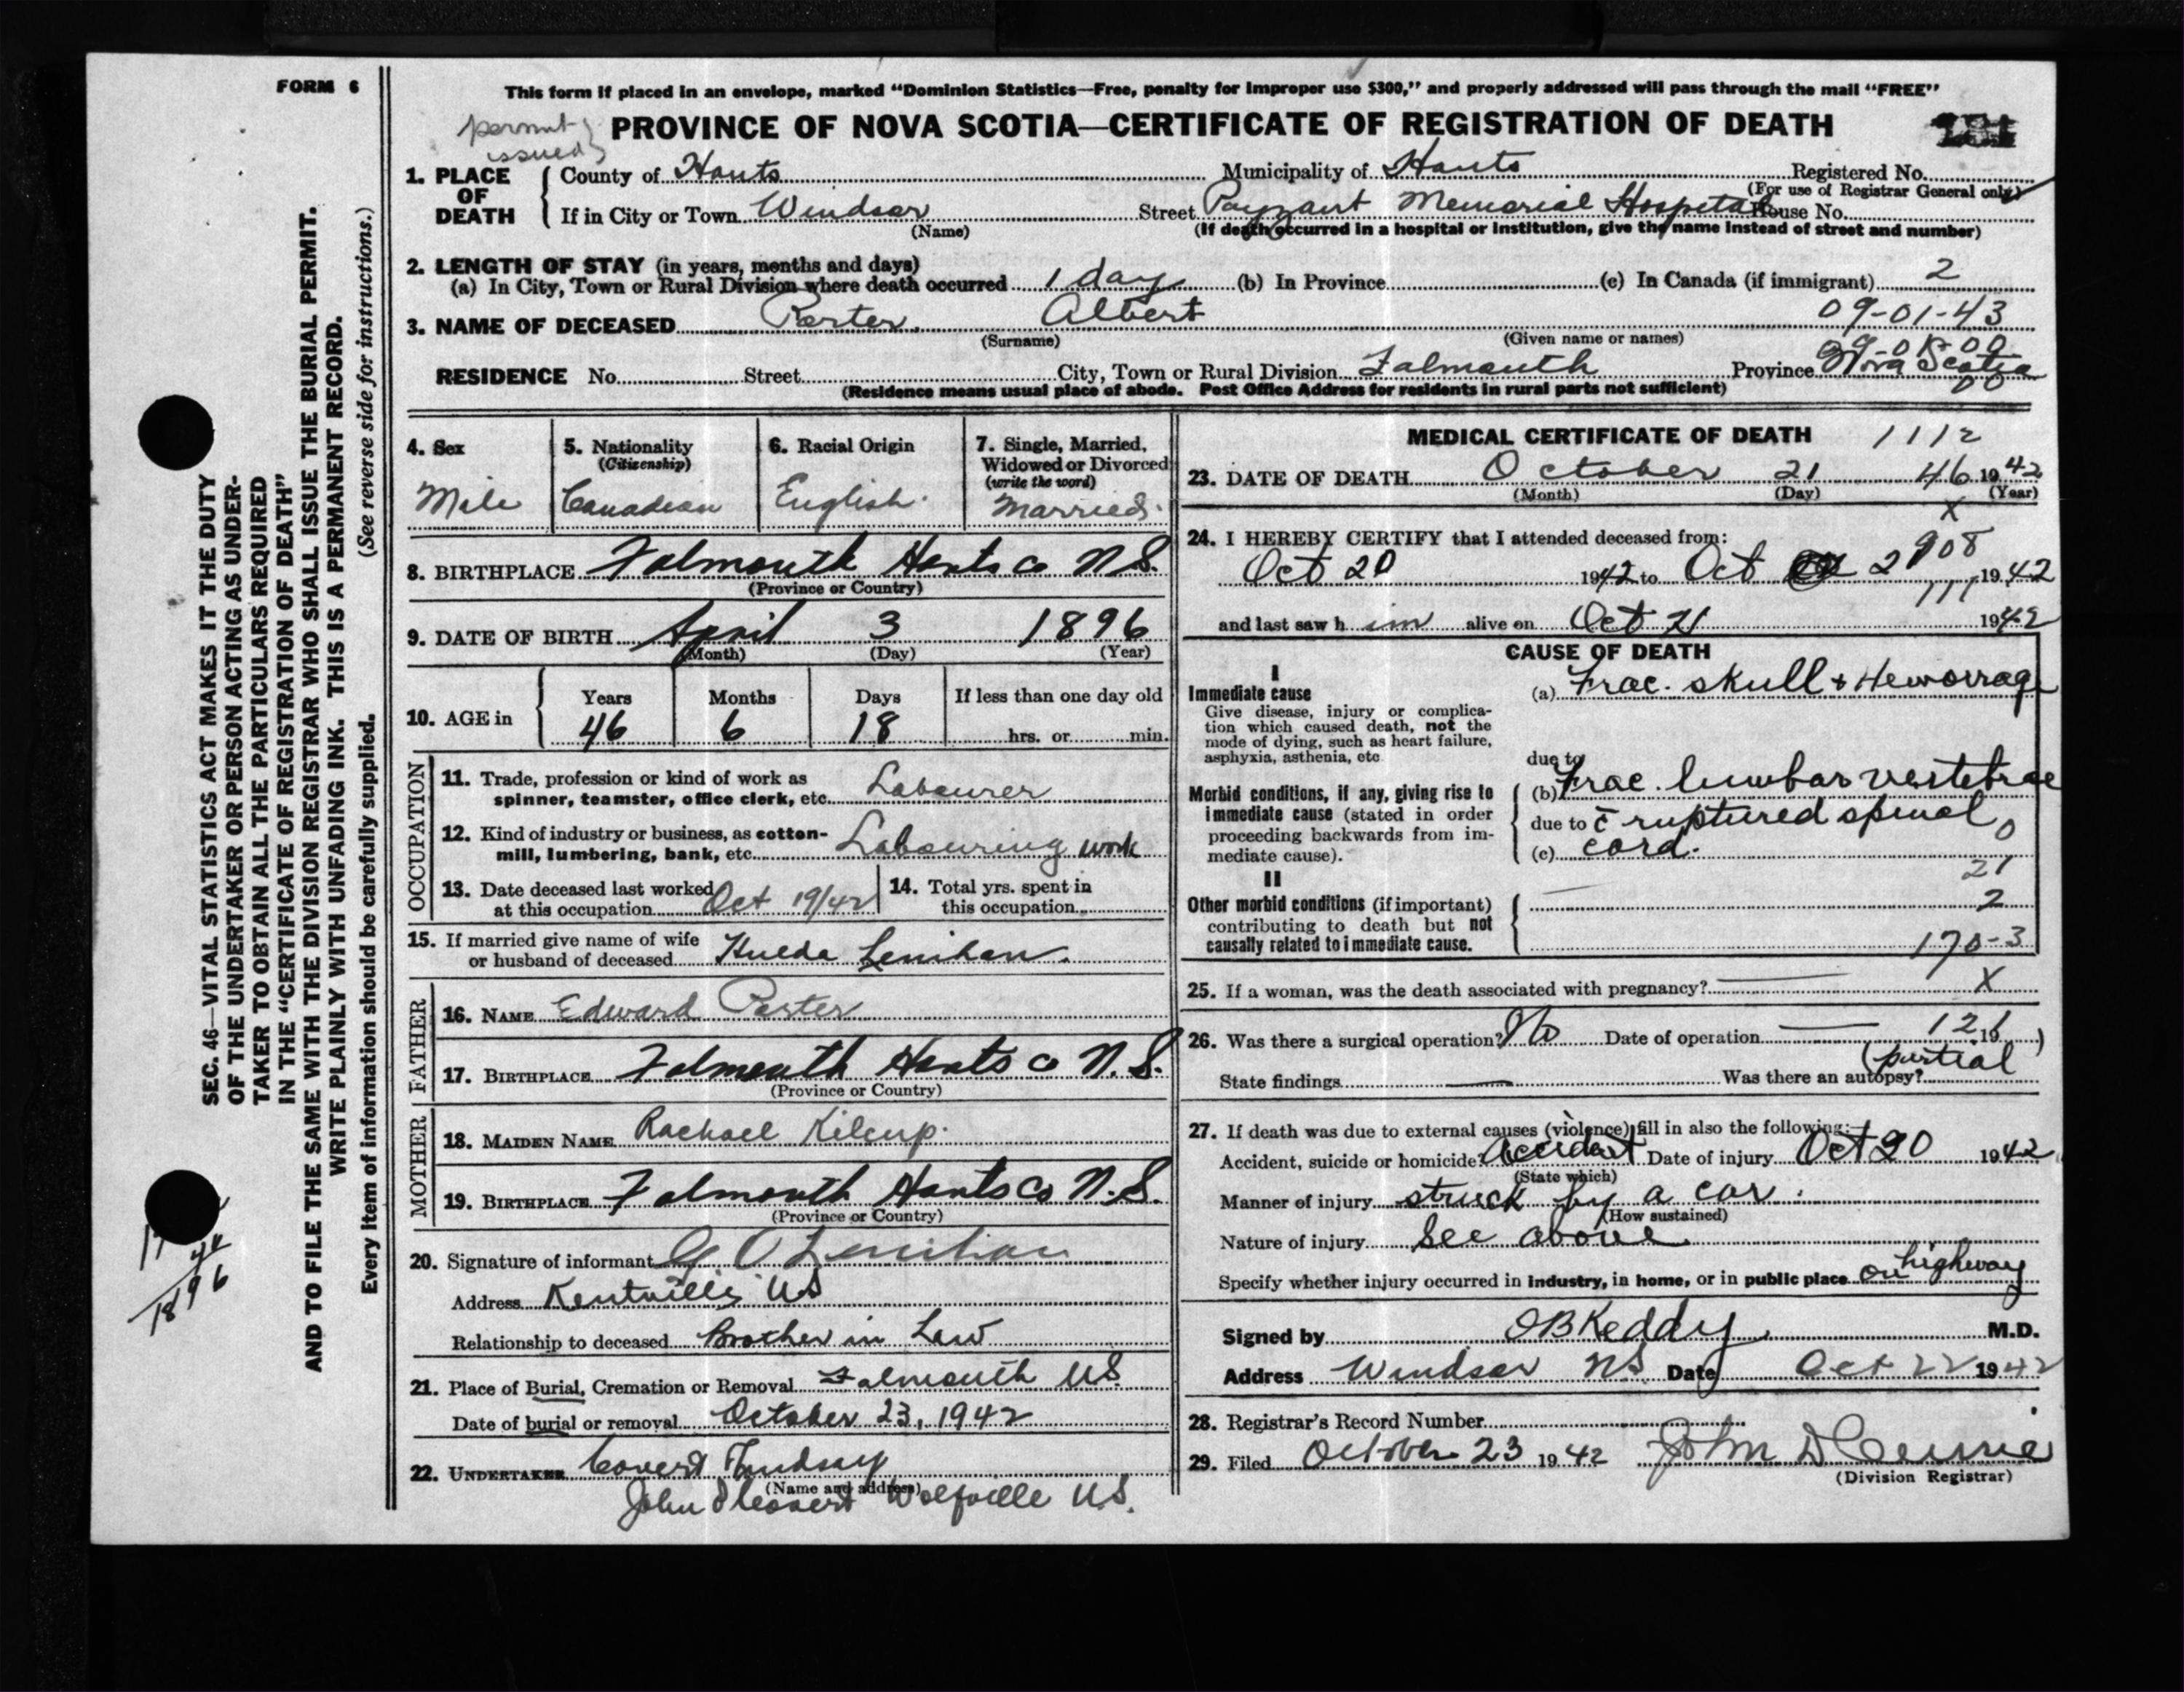 FORM 6
This form if placed in an envelope, marked “Dominion Statistics—Free, penalty for improper use $300,” and properly addressed will pass through the mail “FREE”
permit issued
PROVINCE OF NOVA SCOTIA—CERTIFICATE OF REGISTRATION OF DEATH
1. PLACE OF DEATH
County of Hants Municipality of Hants Registered No.
(For use of Registrar General only)
If in City or Town Windsor Street Payzant Memorial Hospital House No.
(Name) (If death occurred in a hospital or institution, give the name instead of street and number)
2. LENGTH OF STAY (in years, months and days)
(a) In City, Town or Rural Division where death occurred 1 day (b) In Province (c) In Canada (if immigrant) 2
3. NAME OF DECEASED Porter, Albert 09-01-43
(Surname) (Given name or names)
09-01-00
RESIDENCE No. Street City, Town or Rural Division Falmouth Province Nova Scotia
(Residence means usual place of abode. Post Office Address for residents in rural parts not sufficient) 00
4. Sex
Male
5. Nationality
(Citizenship)
Canadian
6. Racial Origin
English
7. Single, Married, Widowed or Divorced
(write the word)
Married
8. BIRTHPLACE Falmouth Hants Co N.S.
(Province or Country)
9. DATE OF BIRTH April 3 1896
(Month) (Day) (Year)
10. AGE in
Years Months Days If less than one day old
46 6 18 hrs. or min.
OCCUPATION
11. Trade, profession or kind of work as
spinner, teamster, office clerk, etc. Labourer
12. Kind of industry or business, as cotton-
mill, lumbering, bank, etc. Labouring work
13. Date deceased last worked
at this occupation Oct 19/42
14. Total yrs. spent in
this occupation
15. If married give name of wife
or husband of deceased Hulda Lenihan.
FATHER
16. NAME Edward Porter
17. BIRTHPLACE Falmouth Hants Co N.S.
(Province or Country)
MOTHER
18. MAIDEN NAME Rachael Kilcup.
19. BIRTHPLACE Falmouth Hants Co N.S.
(Province or Country)
20. Signature of informant G O Lenihan
Address Kentville NS
Relationship to deceased Brother in Law
21. Place of Burial, Cremation or Removal Falmouth NS
Date of burial or removal October 23, 1942
22. UNDERTAKER Covert Lindsay
(Name and address)
John D Covert Wolfville N.S.
MEDICAL CERTIFICATE OF DEATH 1112
23. DATE OF DEATH October 21 46 1942
(Month) (Day) (Year)
X
24. I HEREBY CERTIFY that I attended deceased from:
908
Oct 20 1942 to Oct 21 1942
111
and last saw h im alive on Oct 21 1942
CAUSE OF DEATH
I
Immediate cause
Give disease, injury or complica-
tion which caused death, not the
mode of dying, such as heart failure,
asphyxia, asthenia, etc
(a) Frac. skull & Hemorrage
due to
Morbid conditions, if any, giving rise to
immediate cause (stated in order
proceeding backwards from im-
mediate cause).
(b) Frac. lumbar vertebrae
due to c̄ ruptured spinal 0
(c) cord.
21
II
Other morbid conditions (if important)
contributing to death but not
causally related to immediate cause.
2
170-3
25. If a woman, was the death associated with pregnancy? X
26. Was there a surgical operation? No Date of operation 121 19
State findings Was there an autopsy? (partial)
27. If death was due to external causes (violence) fill in also the following:—
Accident, suicide or homicide? Accident Date of injury Oct 20 1942
(State which)
Manner of injury struck by a car.
(How sustained)
Nature of injury See above
Specify whether injury occurred in industry, in home, or in public place on highway
Signed by O B Keddy M.D.
Address Windsor NS Date Oct 22 1942
28. Registrar's Record Number
29. Filed October 23 1942 John D
(Division Registrar)
SEC. 46—VITAL STATISTICS ACT MAKES IT THE DUTY
OF THE UNDERTAKER OR PERSON ACTING AS UNDER-
TAKER TO OBTAIN ALL THE PARTICULARS REQUIRED
IN THE “CERTIFICATE OF REGISTRATION OF DEATH”
AND TO FILE THE SAME WITH THE DIVISION REGISTRAR WHO SHALL ISSUE THE BURIAL PERMIT.
WRITE PLAINLY WITH UNFADING INK. THIS IS A PERMANENT RECORD.
Every item of information should be carefully supplied. (See reverse side for instructions.)
1896